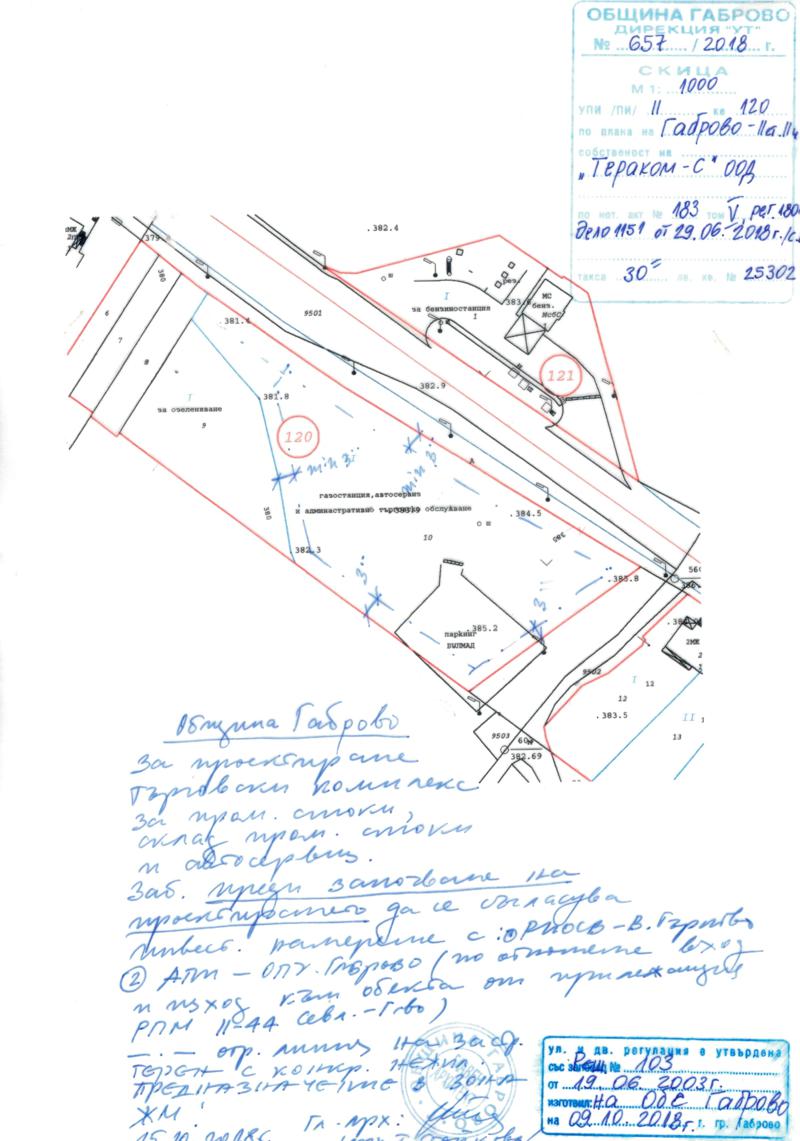 ОБЩИНА ГАБРОВО
ДИРЕКЦИЯ "УТ"
№ ...657...... / 2018 г.
СКИЦА
М 1: ...1000
УПИ /ПИ/ II кв 120
по плана на Габрово-IIа.IIч
собственост на
"Тераком-С" ООД
по нот. акт № 183 том V, рег.180
дело 1151 от 29.06.2018г./с.
такса 30= лв. кв. № 25302
.382.4
379.
380
381.4
9501
6
7
8
I
за озеленяване
9
381.8
120
I
за бензиностанция
1
рез.
383.
МС
бенз.
МсбС
121
382.9
min 3
min 3
А
газостанция,автосервиз
и административно търговско обслужване
10
.384.5
380
380
.382.3
3
3
.383.8
.385.2
паркинг
ВЪЛМАД
9502
9503
60
382.69
56
2МЖ
I
12
12
.383.5
II
13
Община Габрово
За проектиране
търговски комплекс
за пром. стоки,
склад пром. стоки
и автосервиз.
Заб. преди започване на
проектирането да се съгласува
инвест. намерение с: ① РИОСВ-В.Търново
② АПИ – ОПУ.Габрово (по отношение вход
и изход към обекта от прилежащия
РПМ II-44 Севл.-Г-во)
—.— огр. линия на застр.
терен с конкр. нежил.
предназначение в зона
ЖМ!
Гл. арх.
15.10.2018г.
ул. и дв. регулация е утвърдена
със заповед Реш. № 103
от 19.06.2003г.
изготвил: на ОбС Габрово
на 09.10.2018г. гр. Габрово